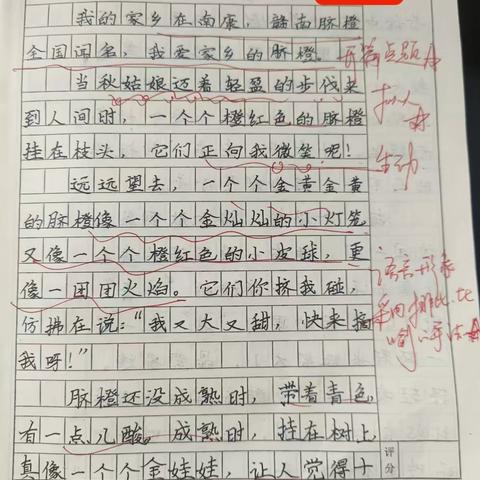 我的家乡在南康，赣南脐橙
全国闻名，我爱家乡的脐橙。
开篇点题
当秋姑娘迈着轻盈的步伐来
到人间时，一个个橙红色的脐橙
拟人
挂在枝头，它们正向我微笑呢！
生动
远远望去，一个个金黄金黄
的脐橙像一个个金灿灿的小灯笼
又像一个个橙红色的小皮球，更
像一团团火焰。它们你挤我碰，
语言形象
采用排比、比
喻
仿拂在说：“我又大又甜，快来摘
我呀！”
脐橙还没成熟时，带着青色，
有一点儿酸。成熟时，挂在树上，
真像一个个金娃娃，让人觉得十
评分